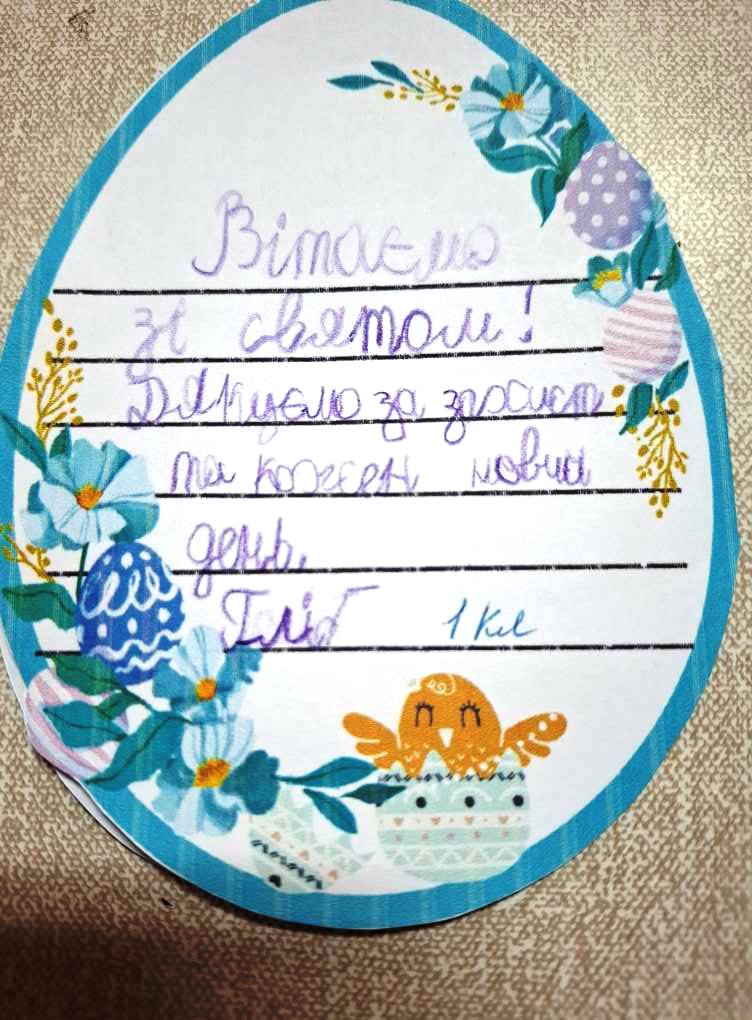 Вітаємо
зі святом!
Дякуємо за захист
та кожен новий
день.
Гліб 1 кл